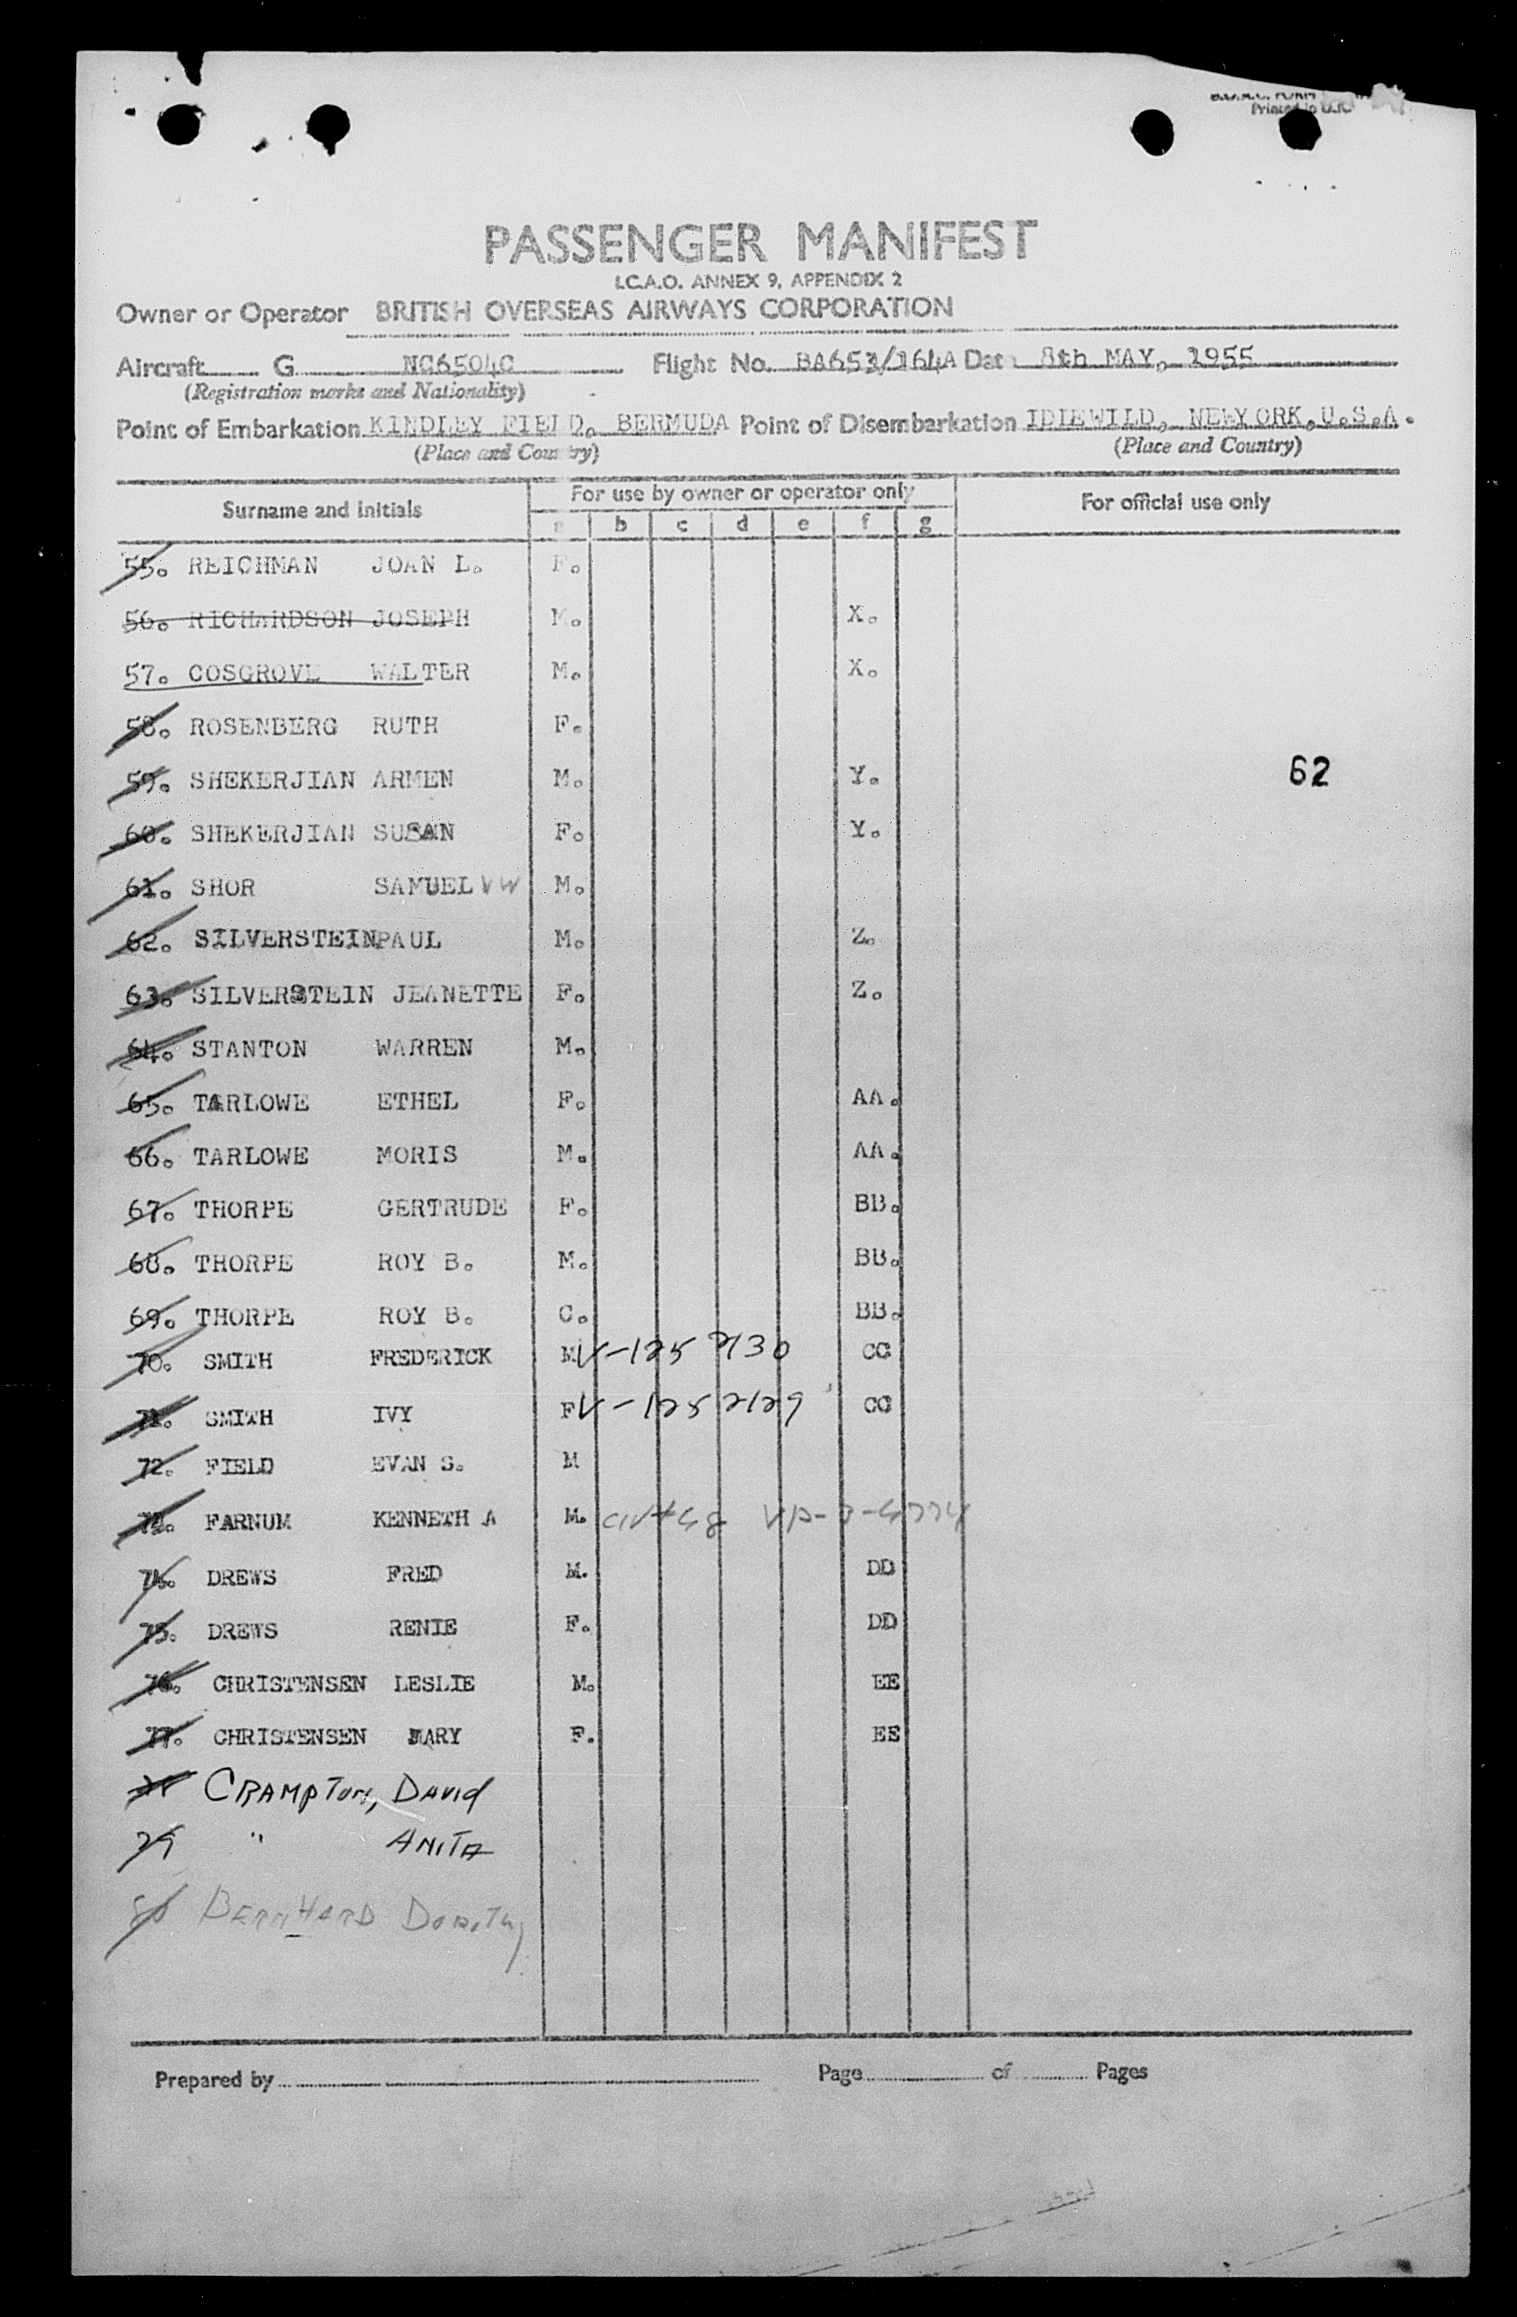 B.O.A.C. FORM
Printed in U.K.
PASSENGER MANIFEST
I.C.A.O. ANNEX 9, APPENDIX 2
Owner or Operator BRITISH OVERSEAS AIRWAYS CORPORATION
Aircraft G NC6504C Flight No. BA653/164A Date 8th MAY, 1955
(Registration marks and Nationality)
Point of Embarkation KINDLEY FIELD, BERMUDA Point of Disembarkation IDLEWILD, NEWYORK,U.S.A.
(Place and Country) (Place and Country)
Surname and initials For use by owner or operator only For official use only
a b c d e f g
55. REICHMAN JOAN L. F.
56. RICHARDSON JOSEPH M. X.
57. COSGROVE WALTER M. X.
58. ROSENBERG RUTH F.
59. SHEKERJIAN ARMEN M. Y.
62
60. SHEKERJIAN SUSAN F. Y.
61. SHOR SAMUEL VW M.
62. SILVERSTEINPAUL M. Z.
63. SILVERSTEIN JEANETTE F. Z.
64. STANTON WARREN M.
65. TARLOWE ETHEL F. AA.
66. TARLOWE MORIS M. AA.
67. THORPE GERTRUDE F. BB.
68. THORPE ROY B. M. BB.
69. THORPE ROY B. C. BB.
70. SMITH FREDERICK M V-125 2130 CC
71. SMITH IVY F V-125 2129 CC
72. FIELD EVAN S. M
73. FARNUM KENNETH A M.
74. DREWS FRED M. DD
75. DREWS RENIE F. DD
76. CHRISTENSEN LESLIE M. EE
77. CHRISTENSEN MARY F. EE
78 CRAMPTON, DAVID
79 " ANITA
80 BERNHARD DOROTHY
Prepared by Page of Pages